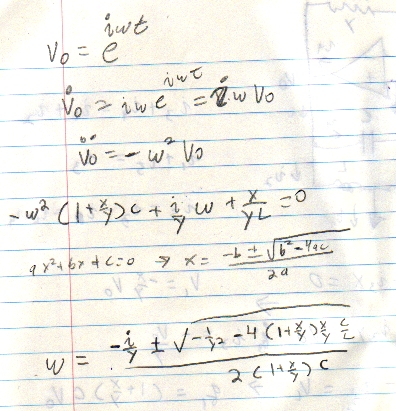 V₀ = e^{iwt}
V̇₀ = iwe^{iwt} = iwV₀
V̈₀ = -w² V₀
-w² (1+x/y)c + i/y w + x/yL = 0
ax²+bx+c=0 → x = (-b ± √(b²-4ac))/2a
w = (-i/y ± √(-1/y² - 4(1+x/y) x/y c/L))/(2(1+x/y)c)